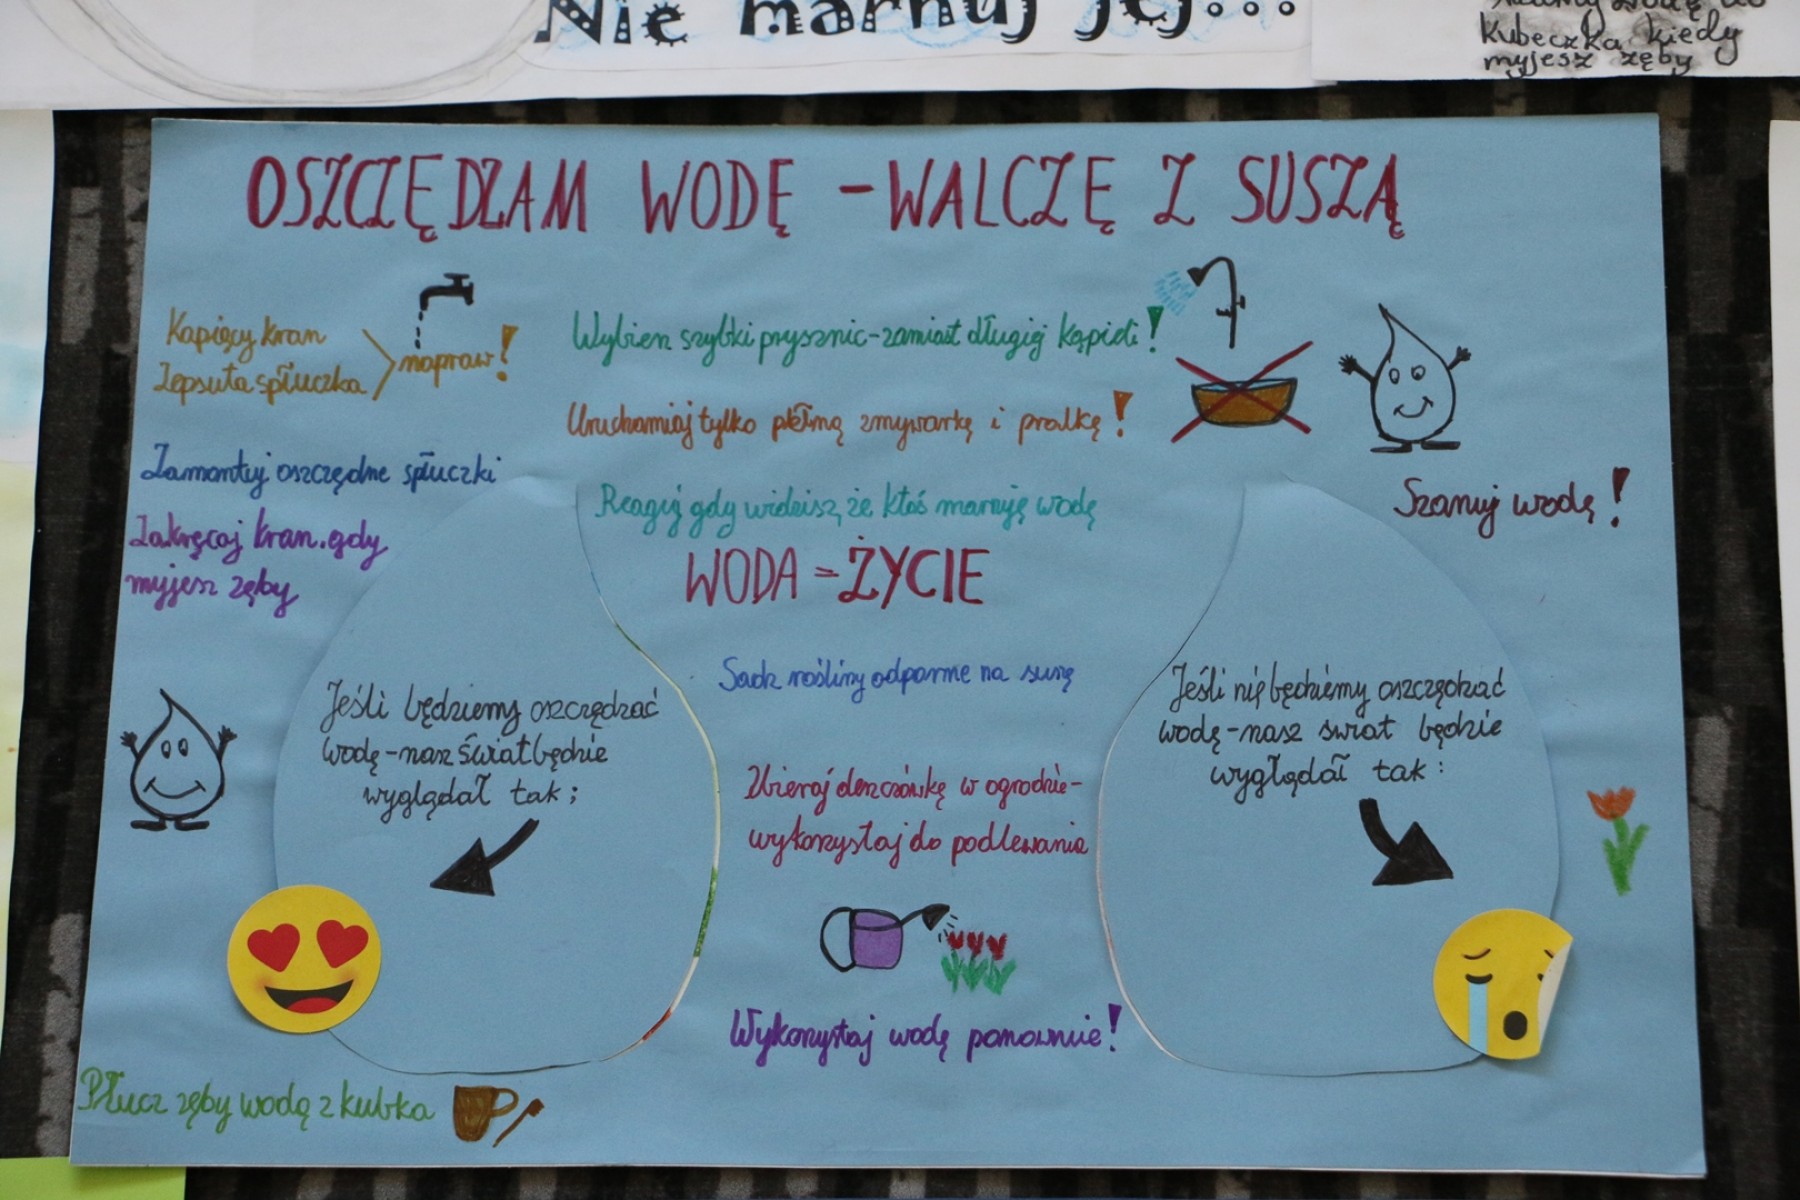 Nie marnuj jej...
wodę do
kubeczka, kiedy
myjesz zęby
OSZCZĘDZAM WODĘ - WALCZĘ Z SUSZĄ
Kapiący kran
Zepsuta spłuczka
napraw!
Wybierz szybki prysznic-zamiast długiej kąpieli!
Uruchamiaj tylko pełną zmywarkę i pralkę!
Zamontuj oszczędne spłuczki
Reaguj gdy widzisz, że ktoś marnuję wodę
Szanuj wodę!
Zakręcaj kran.gdy
myjesz zęby
WODA = ŻYCIE
Sadz rośliny odporne na suszę
Jeśli będziemy oszczędzać
wodę-nasz świat będzie
wyglądał tak;
Jeśli nię będziemy oszczędzać
wodę-nasz swiat będzie
wyglądał tak:
Zbieraj deszczówkę w ogrodzie-
wykorzystaj do podlewania
Wykorzystaj wodę ponownie!
Płucz zęby wodą z kubka